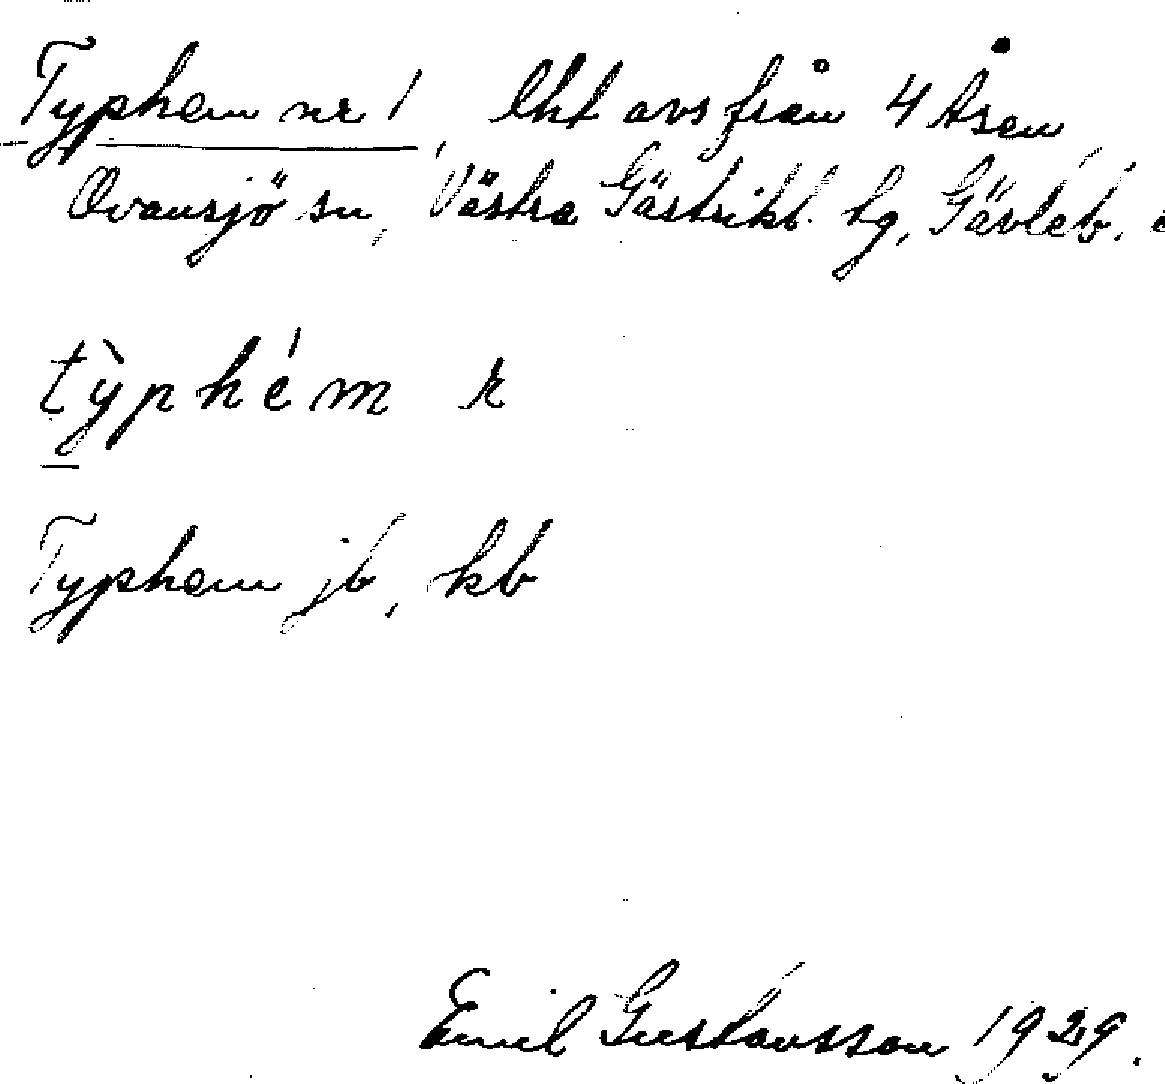 Typhem nr 1, lht avs från 4 Åsen,
Ovansjö sn, Västra Gästrikl. tg, Gävleb.
typhem r
Typhem jb, kb
Emil Gustavsson 1929.